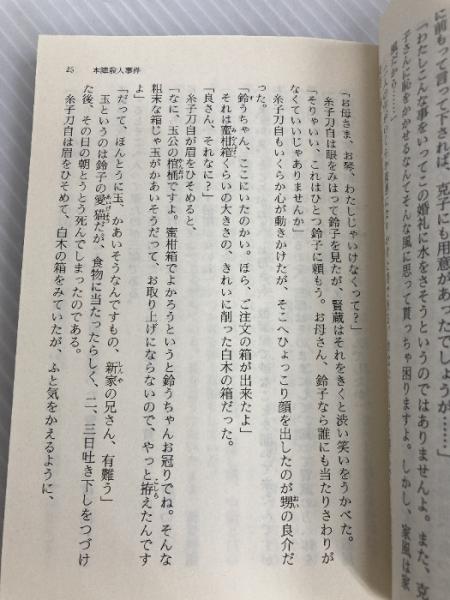 に前もって言って下されば、克子にも用意があったでしょうが……」
「わたしこんな事をいってこの婚礼に水をさそうというのではありませんよ。また、克
子さんに恥をかかせるなんてそんな風に思って貰っちゃ困りますよ。しかし、家風は家
風だから……
25　本陣殺人事件
「お母さま、お琴、わたしじゃいけなくって？」
糸子刀自は眼をみはって鈴子を見たが、賢蔵はそれをきくと渋い笑いをうかべた。
「そりゃいい、これはひとつ鈴子に頼もう。お母さん、鈴子なら誰にも当たりさわりが
なくていいじゃありませんか」
糸子刀自もいくらか心が動きかけたが、そこへひょっこり顔を出したのが甥の良介だ
った。
「鈴うちゃん、ここにいたのかい。ほら、ご注文の箱が出来たよ」
それは蜜柑箱くらいの大きさの、きれいに削った白木の箱だった。
「良さん、それなに？」
糸子刀自が眉をひそめると、
「なに、玉公の棺桶ですよ。蜜柑箱でよかろうというと鈴うちゃんお冠りでね。そんな
粗末な箱じゃ玉がかあいそうだって、お取り上げにならないので、やっと拵えたんです
よ」
「だって、ほんとうに玉、かあいそうなんですもの、新家の兄さん、有難う」
玉というのは鈴子の愛猫だが、食物に当たったらしく、二、三日吐き下しをつづけ
た後、その日の朝とうとう死んでしまったのである。
糸子刀自は眉をひそめて、白木の箱をみていたが、ふと気をかえるように、